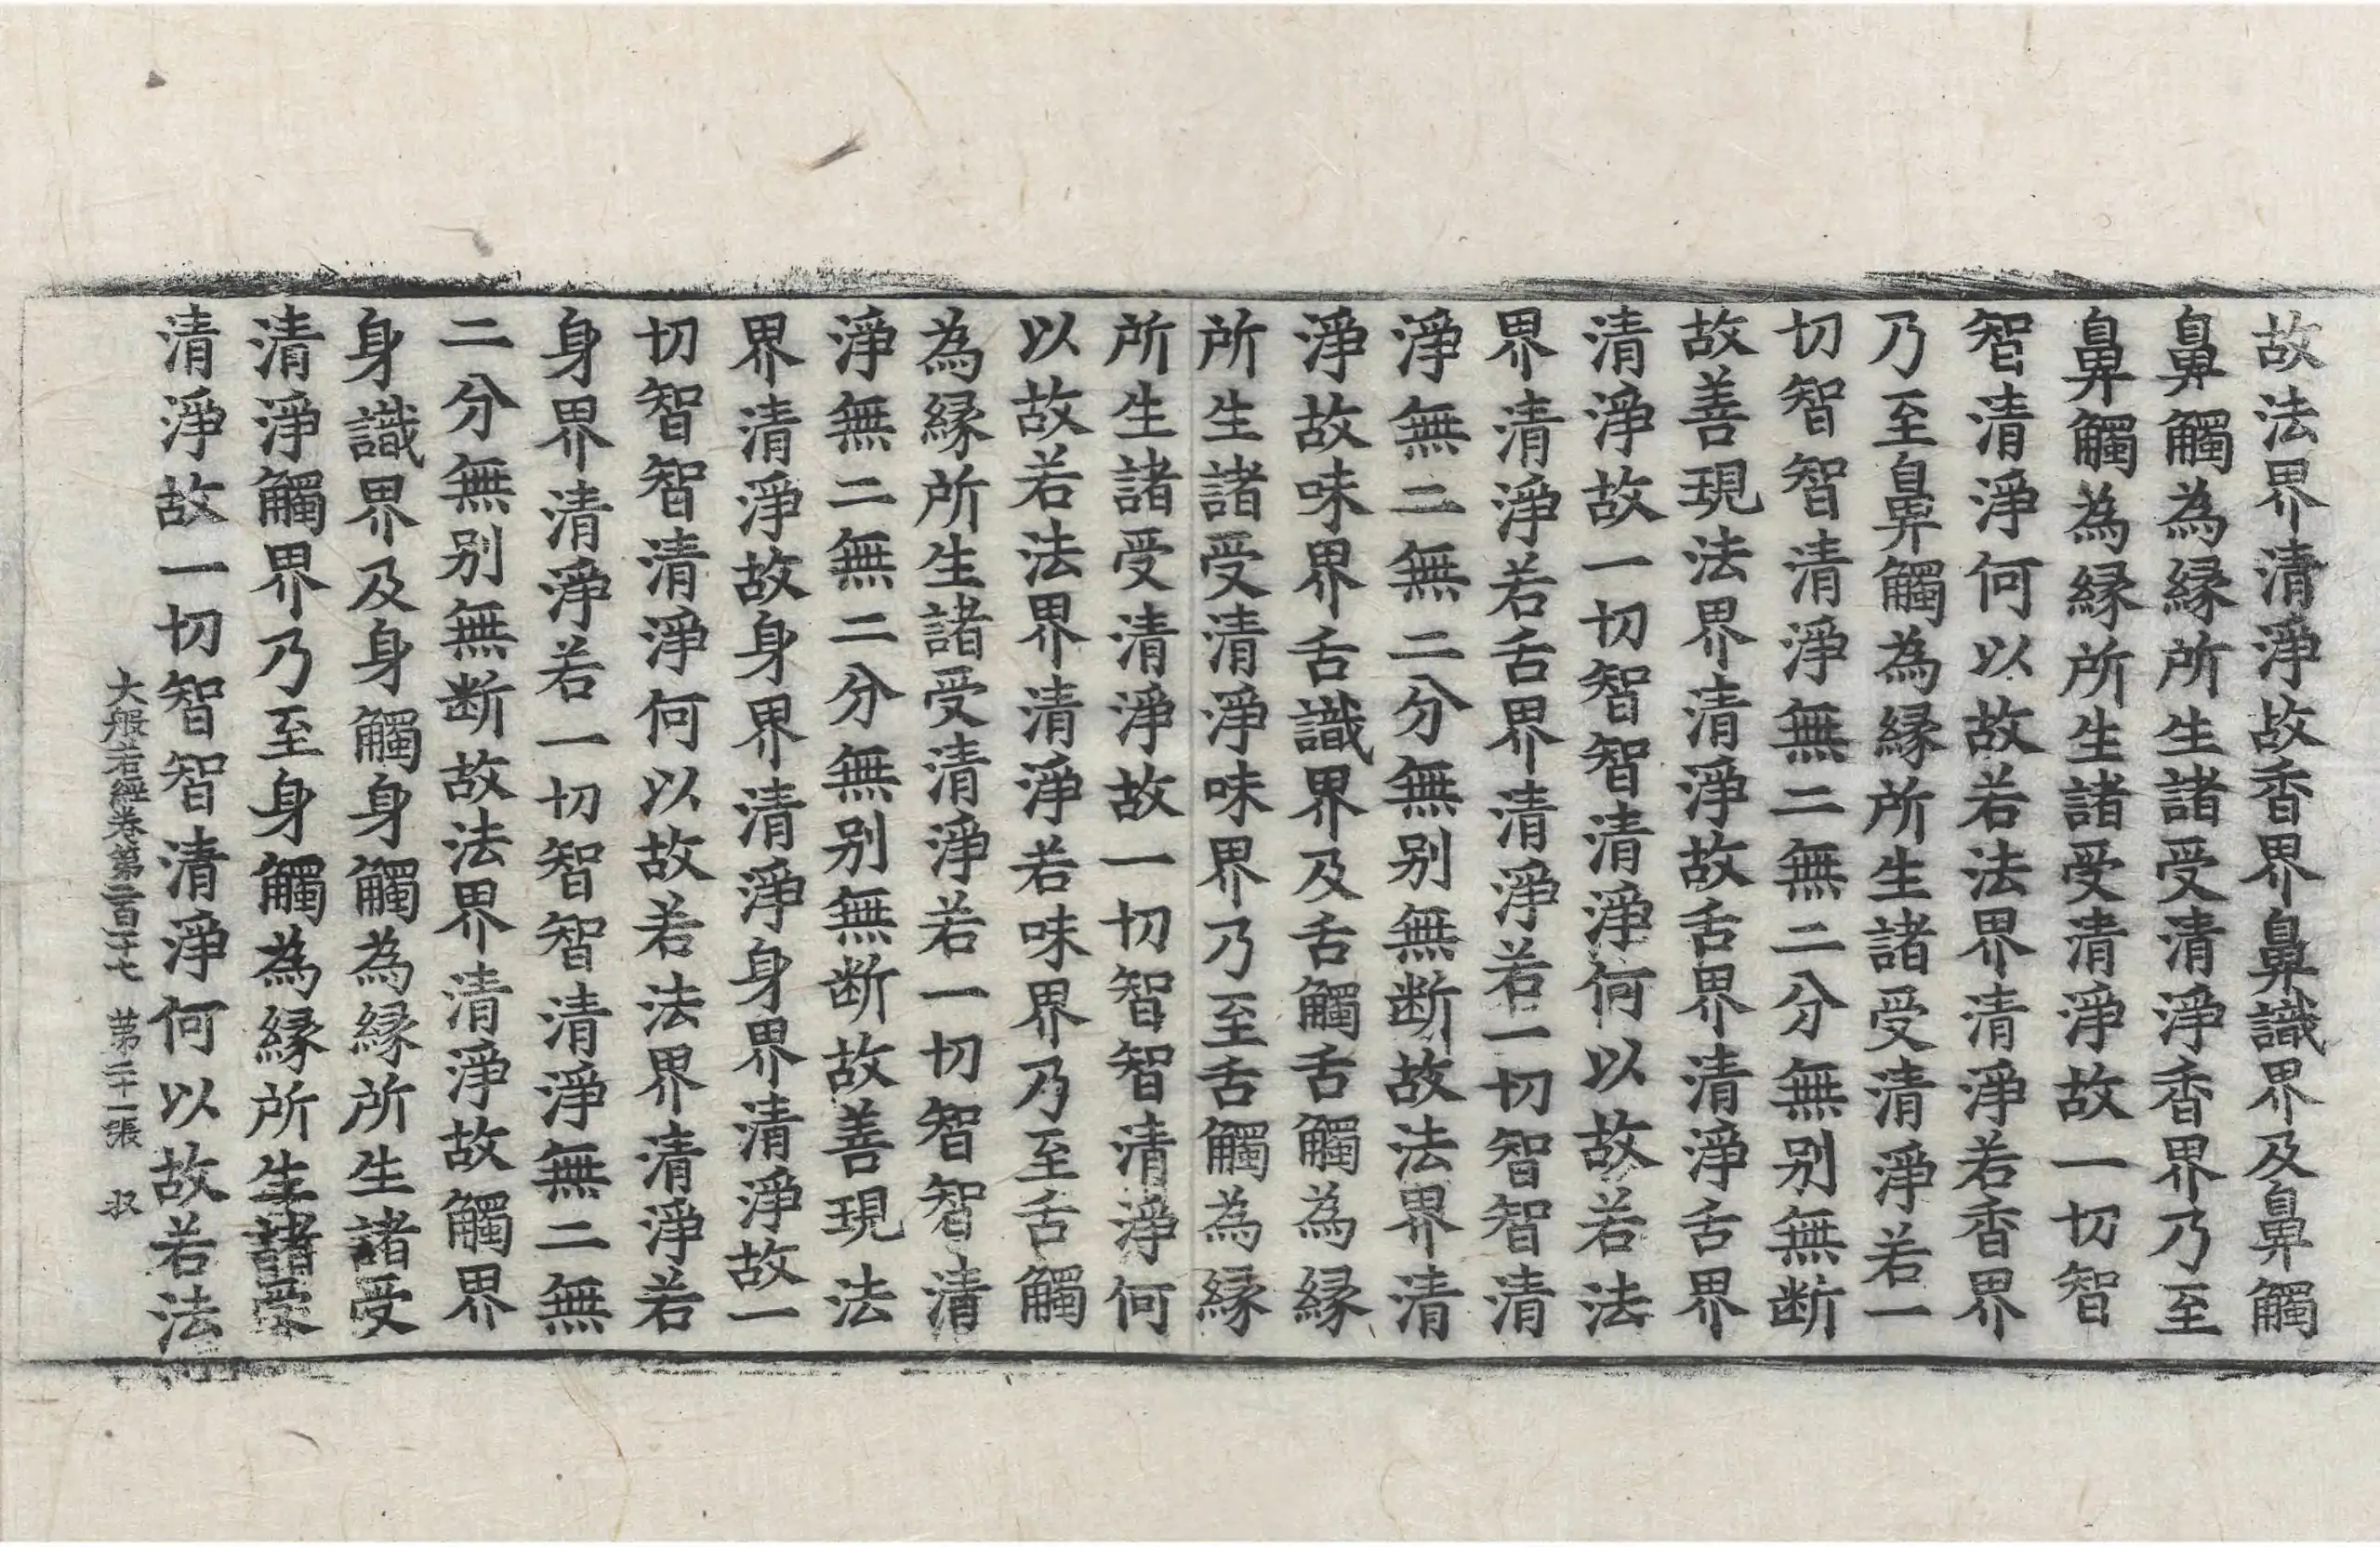 故法界清淨故香界鼻識界及鼻觸
鼻觸為縁所生諸受清淨香界乃至
鼻觸為縁所生諸受清淨故一切智
智清淨何以故若法界清淨若香界
乃至鼻觸為縁所生諸受清淨若一
切智智清淨無二無二分無别無断
故善現法界清淨故舌界清淨舌界
清淨故一切智智清淨何以故若法
界清淨若舌界清淨若一切智智清
淨無二無二分無别無断故法界清
淨故味界舌識界及舌觸舌觸為縁
所生諸受清淨味界乃至舌觸為縁
所生諸受清淨故一切智智清淨何
以故若法界清淨若味界乃至舌觸
為縁所生諸受清淨若一切智智清
淨無二無二分無别無断故善現法
界清淨故身界清淨身界清淨故一
切智智清淨何以故若法界清淨若
身界清淨若一切智智清淨無二無
二分無别無断故法界清淨故觸界
身識界及身觸身觸為縁所生諸受
清淨觸界乃至身觸為縁所生諸受
清淨故一切智智清淨何以故若法
大般若經卷第二百一十七 第二十一張 収